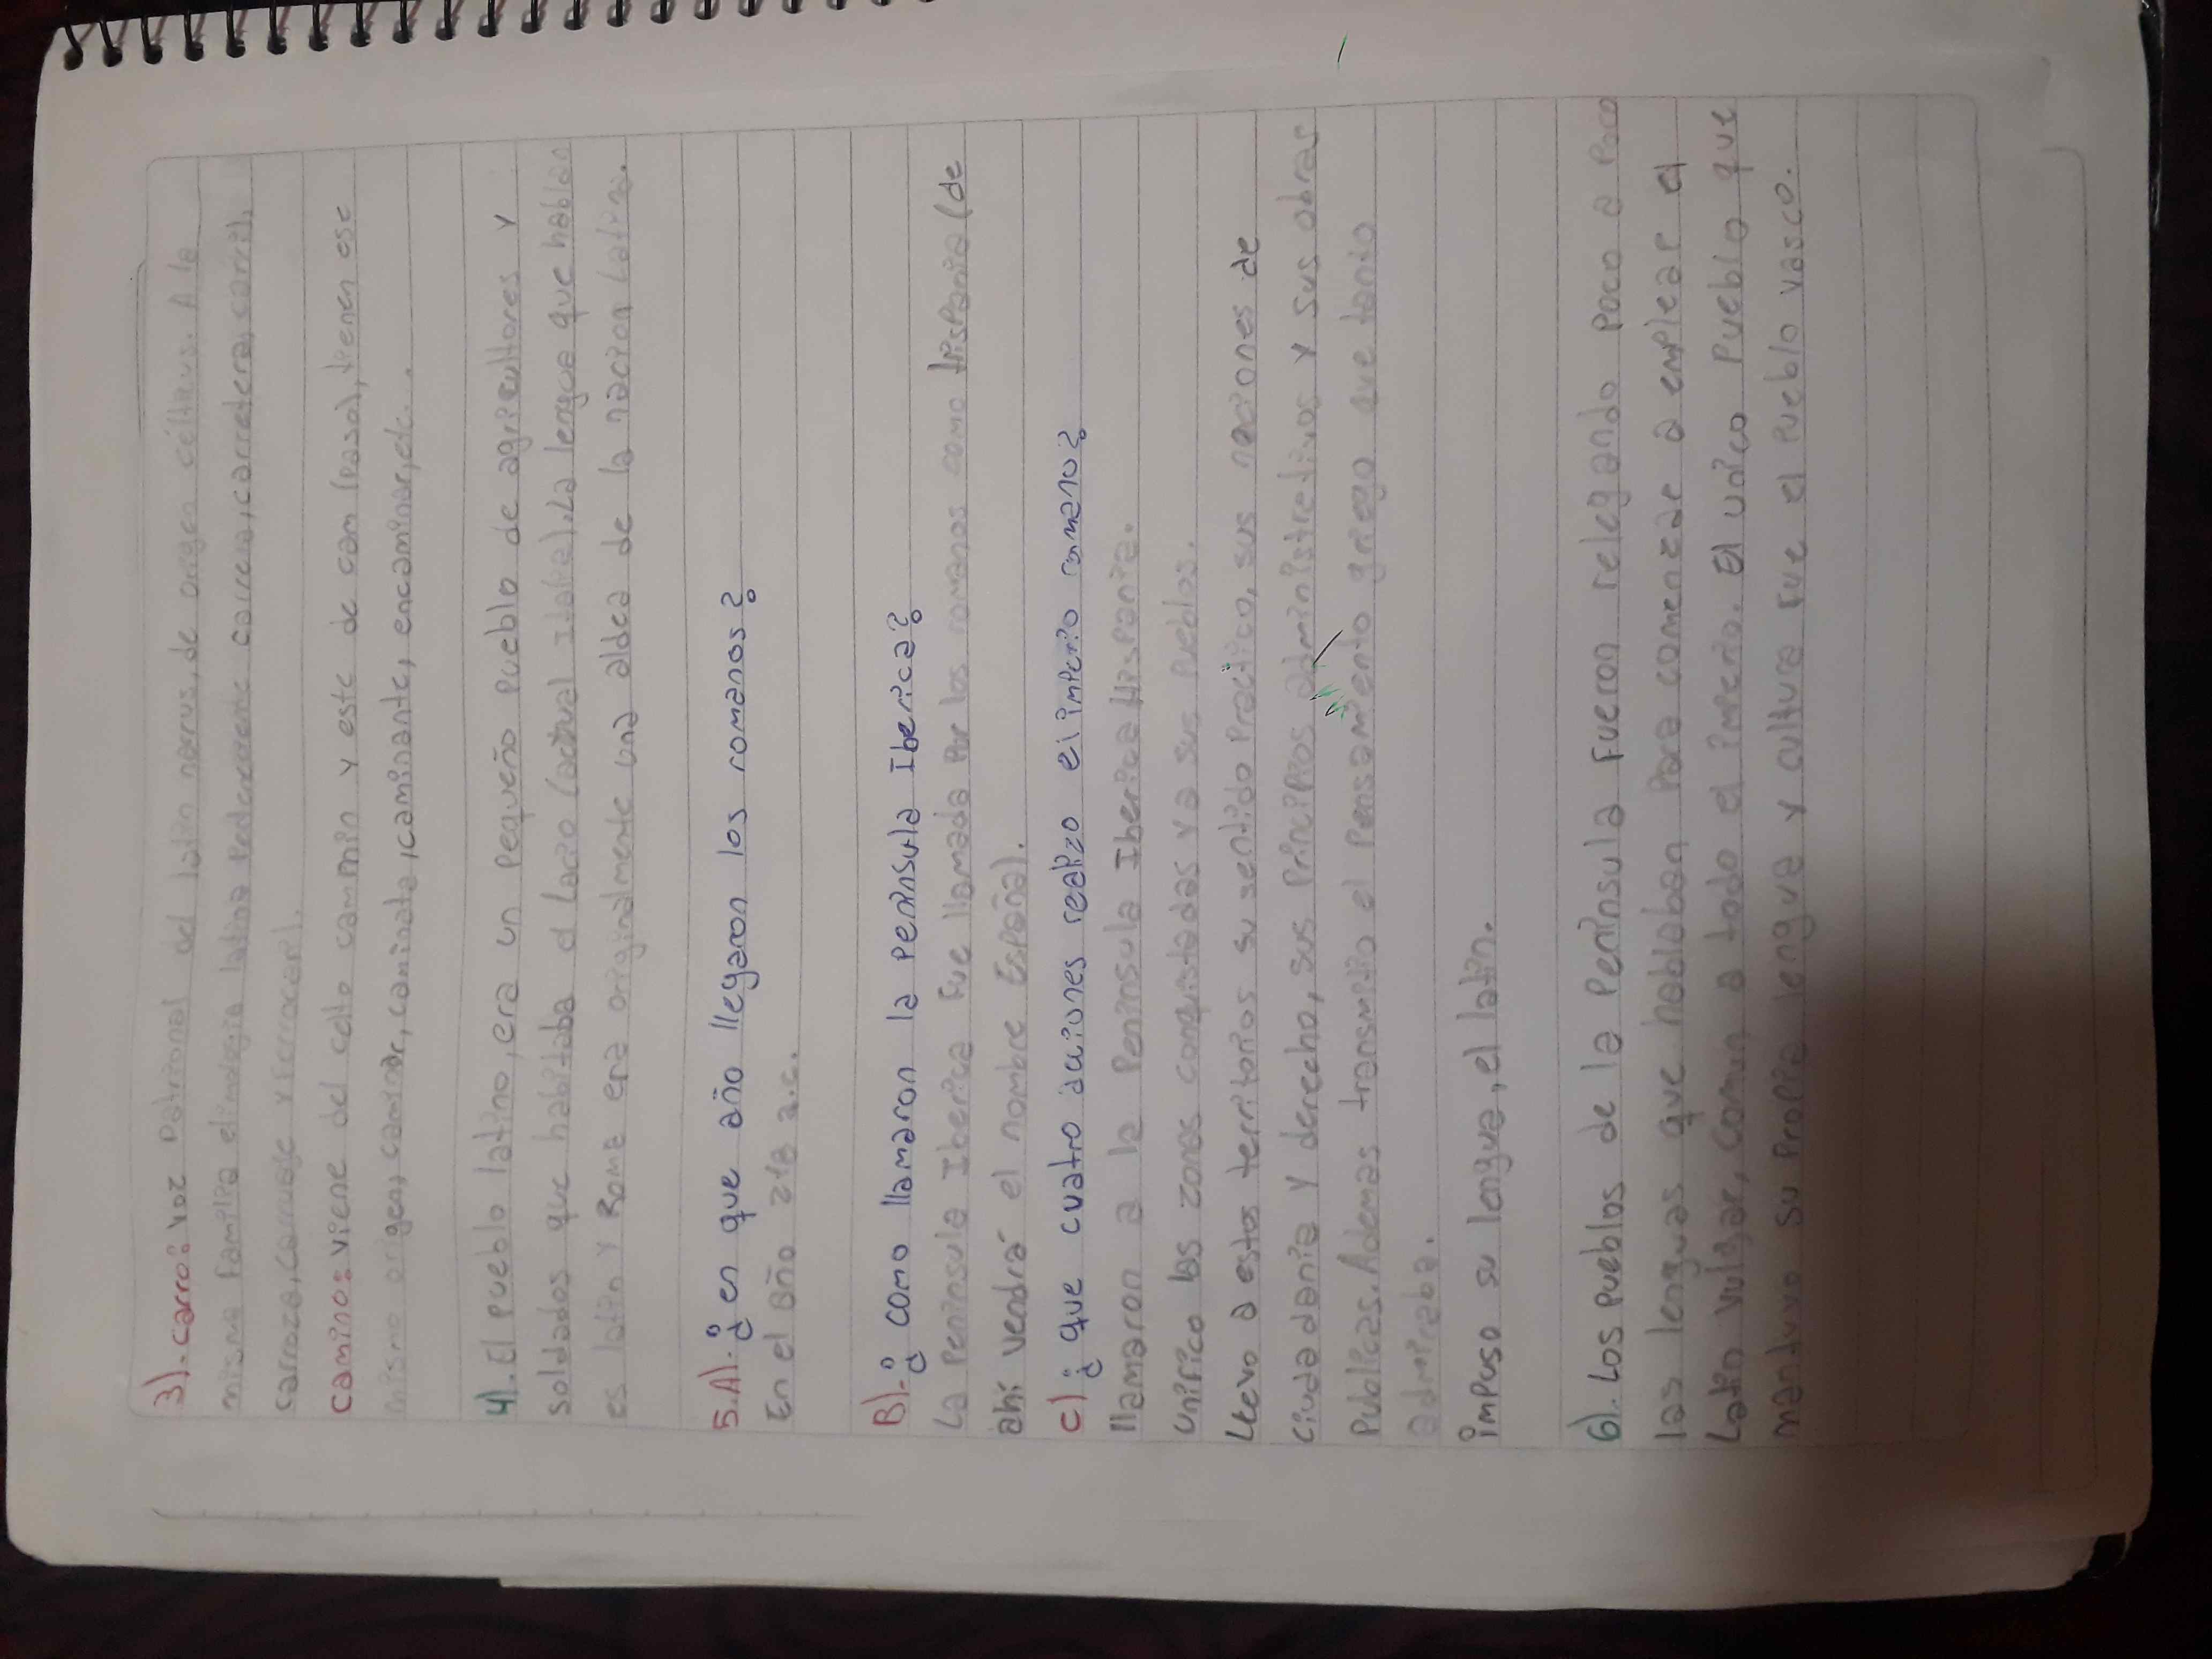 3).-carro: voz patrional del latin narrus, de origen céltivus. A la
misma familia etimologia latina pertenecene carrera, carretera, carril,
carroza, carruaje y ferrocarril.
camino: viene del celto cammin y este de cam (paso), tienen ese
mismo origen, caminar, caminata, caminante, encaminar, etc.
4).-El pueblo latino, era un pequeño pueblo de agricultores y
soldados que habitaba el lacio (actual italia). La lengua que hablan
es latin y Roma era originalmente una aldea de la nacion latina.
5.A).-¿en que año llegaron los romanos?
En el año 218 a.c.
B)-¿como llamaron la peninsula Iberica?
La peninsula Iberica fue llamada por los romanos como Hispania (de
ahí vendrá el nombre España).
c)¿que cuatro aciones realizo el imperio romano?
llamaron a la Peninsula Iberica Hispania.
unifico las zonas conquistadas y a sus pueblos.
Llevo a estos territorios su sentido practico, sus nociones de
ciudadania y derecho, sus principios administrativos y sus obras
Publicas. Ademas transmitio el pensamiento griego que tanto
admiraba.
impuso su lengua, el latin.
6).-Los pueblos de la Peninsula fueron relegando poco a poco
las lenguas que hablaban para comenzar a emplear el
Latin vulgar, comun a todo el imperio. El unico pueblo que
mantuvo su propia lengua y cultura fue el pueblo vasco.